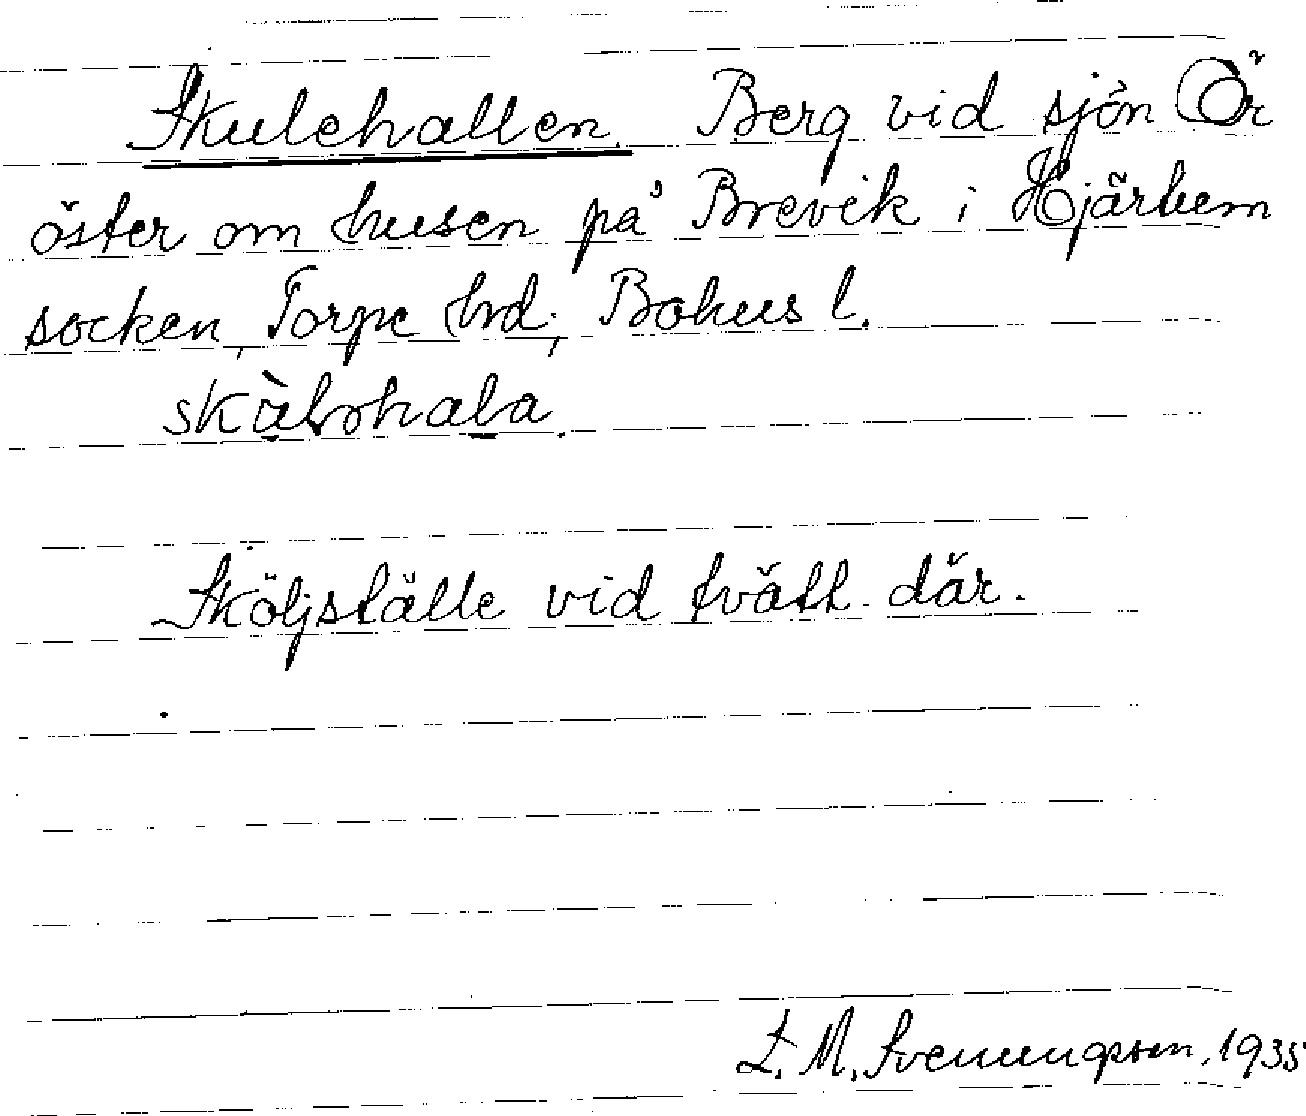 Skulehallen. Berg vid sjön Ör
öster om husen på Brevik i Hjärtum
socken, Torpe hrd; Bohus l.
Sköljställe vid tvätt där.
L. M. Svenungsson, 1935